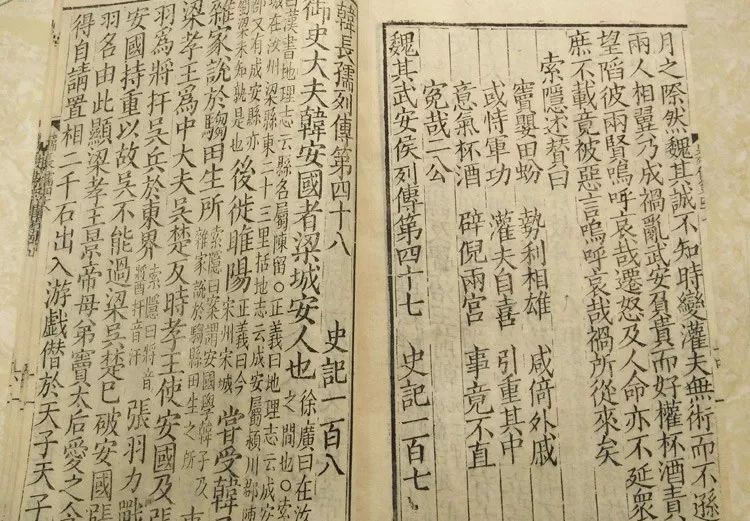 月之際然魏其誠不知時變灌夫無術而不遜
兩人相翼乃成禍亂武安負貴而好權杯酒責
望陷彼兩賢嗚呼哀哉遷怒及人命亦不延衆
庶不載竟被惡言嗚呼哀哉禍所從來矣
索隱述贊曰
竇嬰田蚡 勢利相雄 咸倚外戚
或恃軍功 灌夫自喜 引重其中
意氣杯酒 辟倪兩宮 事竟不直
冤哉二公
魏其武安侯列傳第四十七 史記一百七
韓長孺列傳第四十八 史記一百八
御史大夫韓安國者梁城安人也 徐廣曰在汝
之間也○索
曰漢書地理志云縣名屬陳留○正義曰地理志云成安
城在汝州梁縣東二十三里括地志云成安屬潁川郡陳
郡又有成安縣亦
屬梁未知孰是也 後徙睢陽 正義曰今
宋州宋城 嘗受韓子
雜家說於騶田生所 索隱曰案謂安國學韓子及
雜家說於騶縣田生之所
梁孝王為中大夫吳楚反時孝王使安國及張
羽為將扞吳兵於東界 索隱曰將音
醬扞音汗 張羽力戰
安國持重以故吳不能過梁吳楚已破安國張
羽名由此顯梁孝王景帝母弟竇太后愛之令
得自請置相二千石出入游戲僭於天子天子